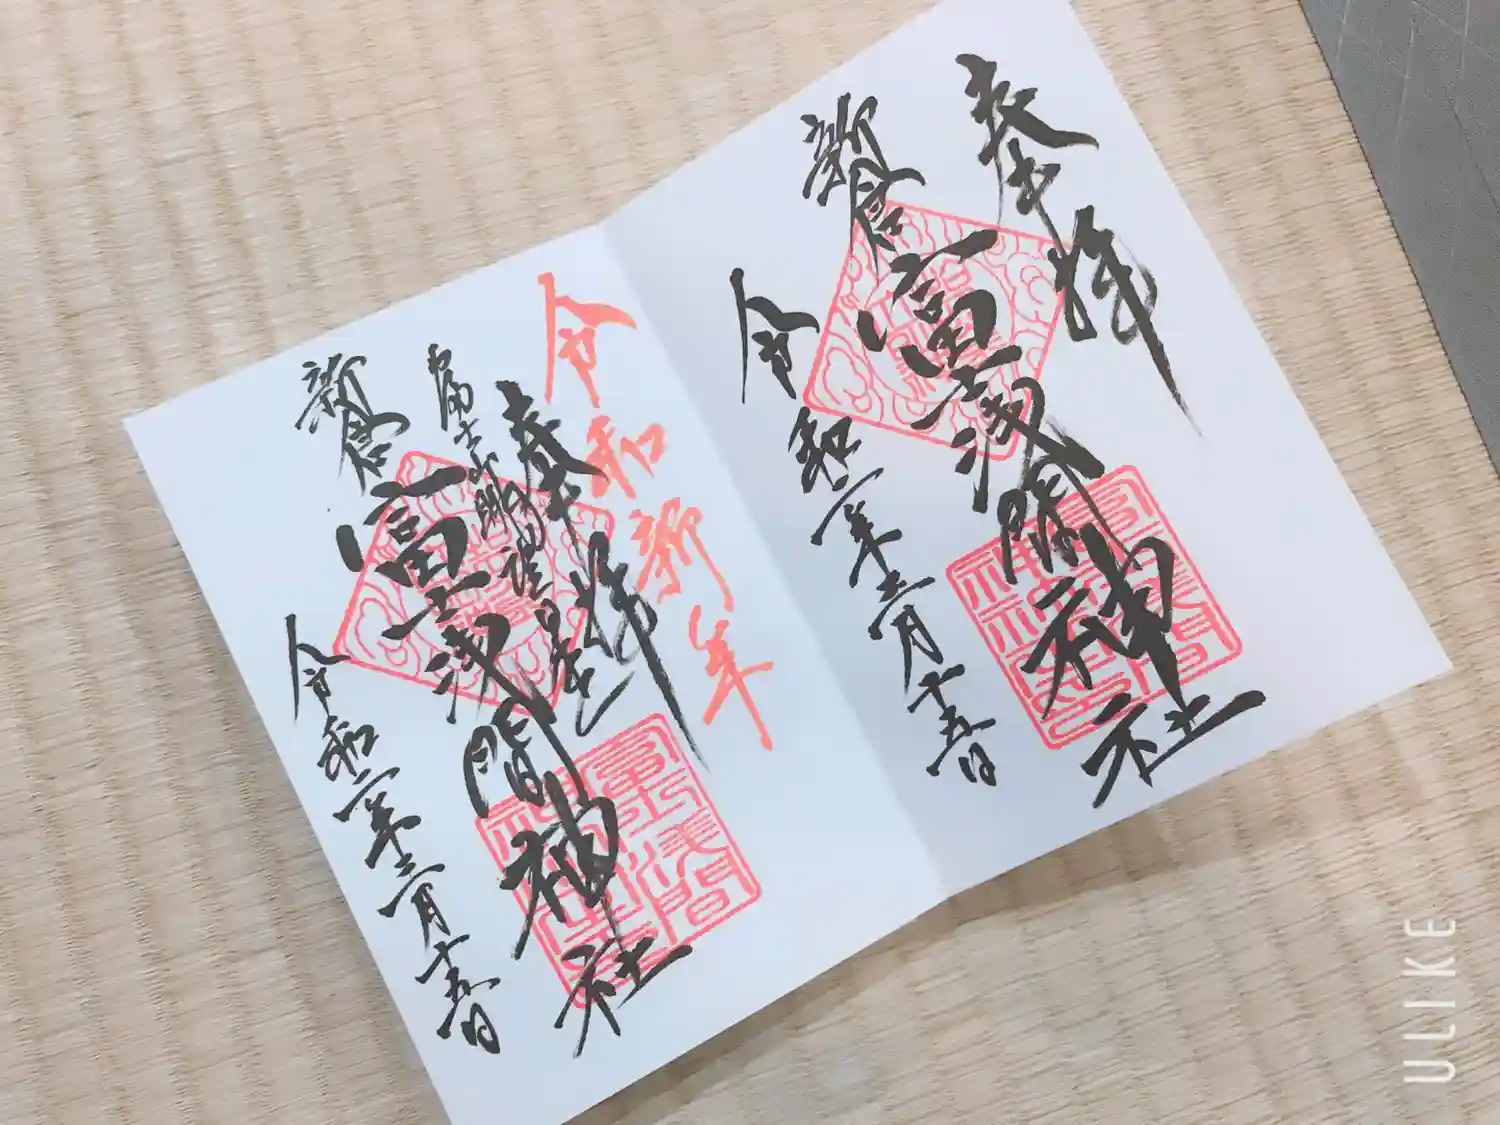 奉拝
新倉
富士浅間神社
令和二年二月十五日
令和新年
奉拝
富士山眺望日本一
新倉
富士浅間神社
令和二年二月十五日
富士浅間
ULIKE